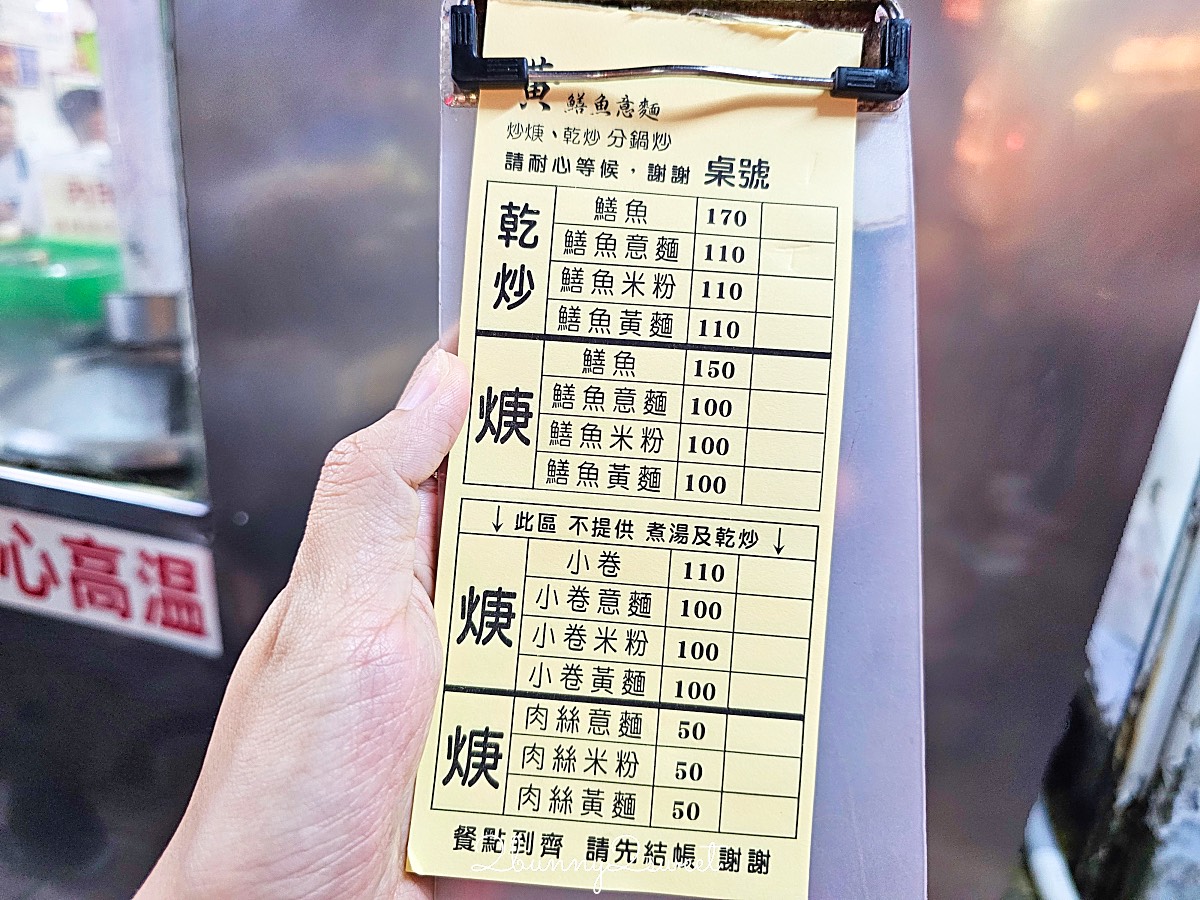 黃 鱔魚意麵
炒焿、乾炒 分鍋炒
請耐心等候，謝謝 桌號
乾炒
鱔魚 170
鱔魚意麵 110
鱔魚米粉 110
鱔魚黃麵 110
焿
鱔魚 150
鱔魚意麵 100
鱔魚米粉 100
鱔魚黃麵 100
↓此區 不提供 煮湯及乾炒↓
焿
小卷 110
小卷意麵 100
小卷米粉 100
小卷黃麵 100
焿
肉絲意麵 50
肉絲米粉 50
肉絲黃麵 50
餐點到齊 請先結帳 謝謝
心高溫